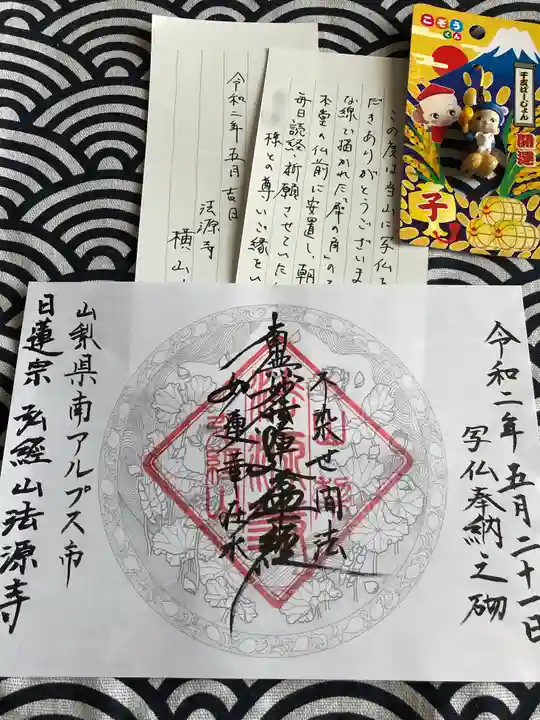 令和二年五月吉日
法源寺
横山
この度は当山に写仏を
だきありがとうございま
な線で描かれた「犀の角」の
本堂の仏前に安置し、朝
毎日、読経・祈願させていた
様との尊いご縁をい
こぞうくん
干支ばーじょん
開運
子
令和二年五月二十一日
写仏奉納之砌
不染世間法
南無妙法蓮華経
如蓮華在水
山梨県南アルプス市
日蓮宗 弘経山法源寺